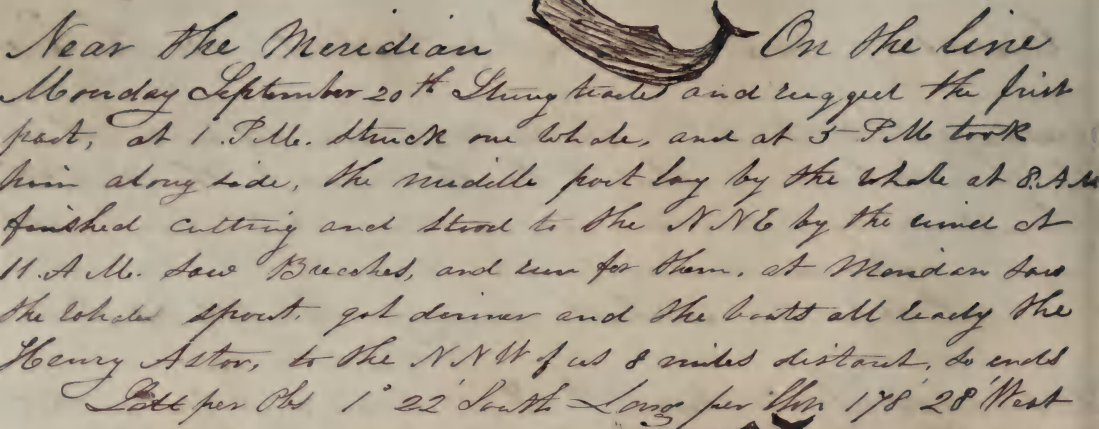 Near the Meridian On the line
Monday September 20th Strong trades and rugged the first
part, at 1 P.M. struck one whale, and at 5 PM took
him along side, the middle part lay by the whale at 8. A M
finished cutting and stood to the NNE by the wind At
11. A M. saw Breaches, and run for them, at Meridian saw
the whale spout, got dinner and the boats all ready the
Henry Astor, to the NNW of us 8 miles distant, so ends
Latt per Obs 1° 22' South Long per Chn 178° 28' West